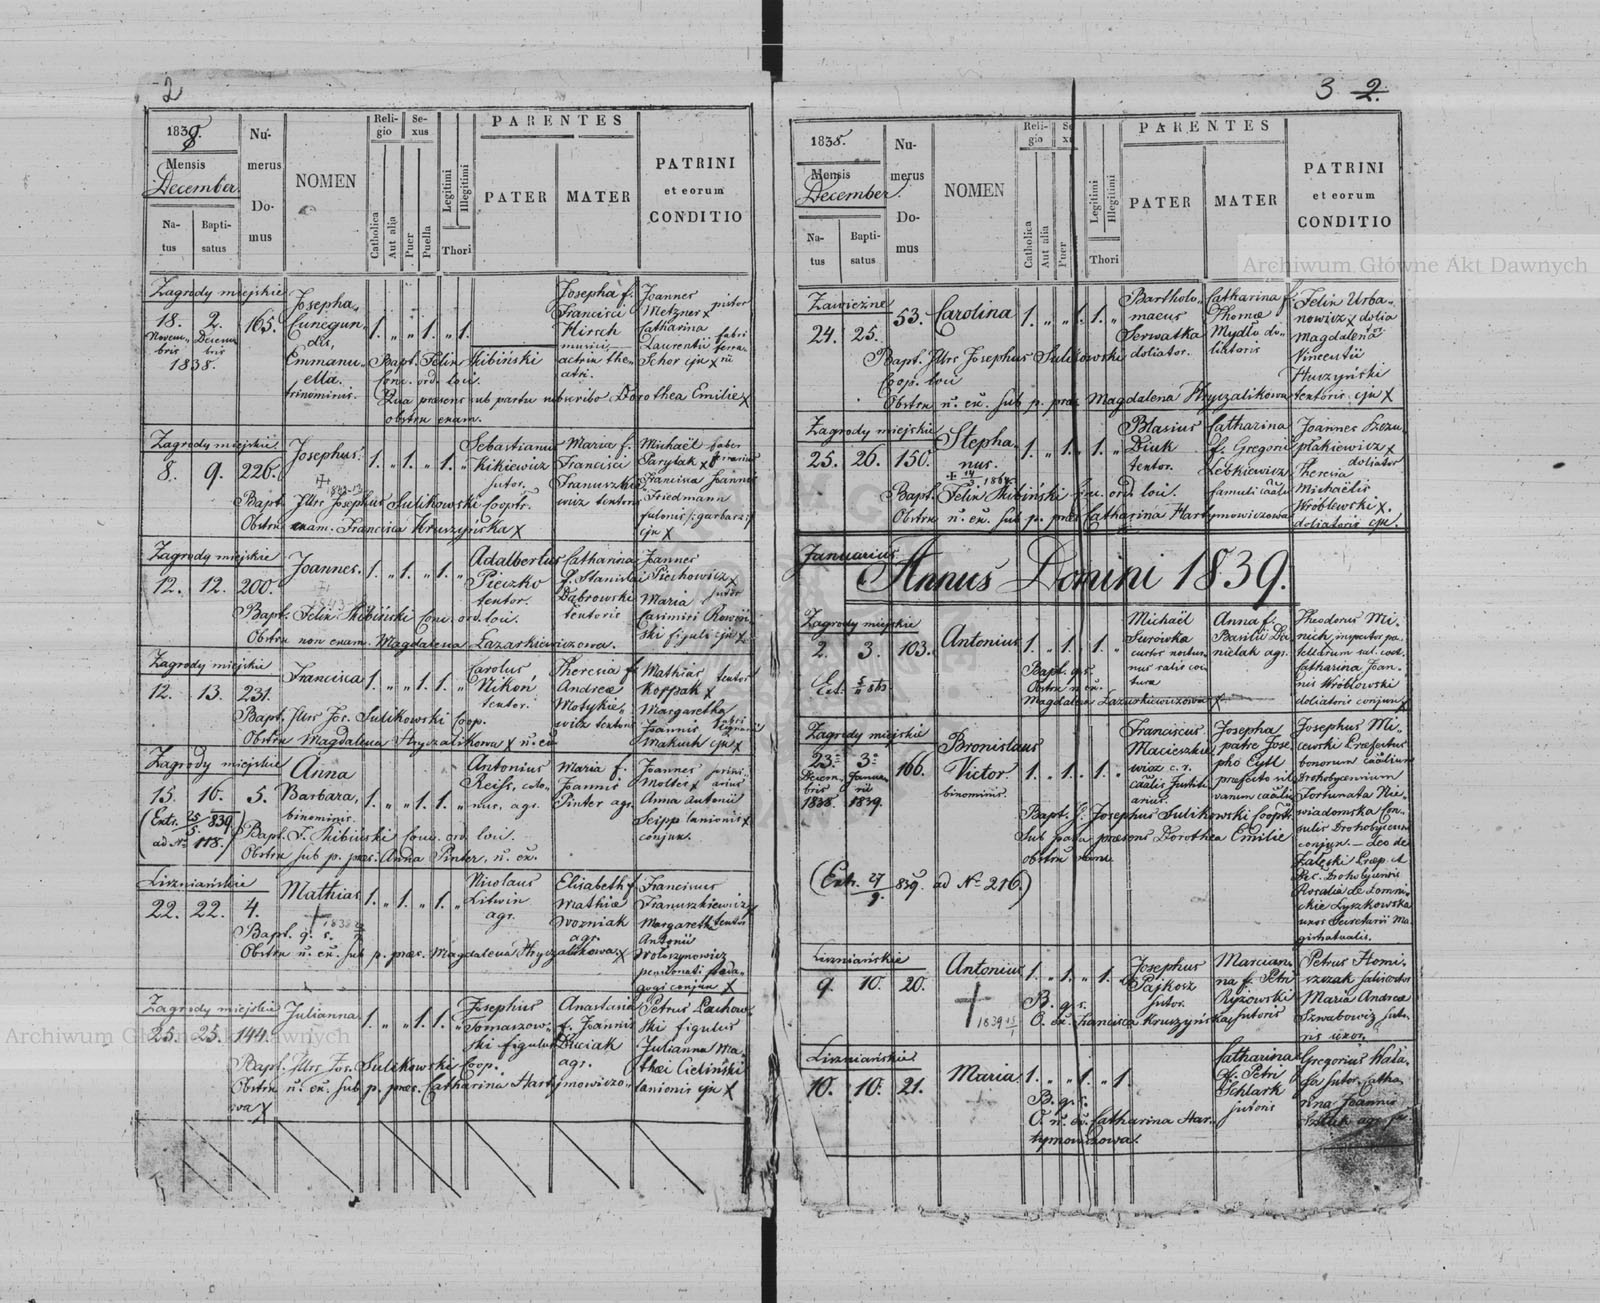 2
1838.
Mensis
December.
Natus
Baptisatus
Numerus Domus
NOMEN
Religio
Catholica
Aut alia
Sexus
Puer
Puella
Legitimi
Illegitimi
Thori
PARENTES
PATER
MATER
PATRINI
et eorum
CONDITIO
Zagrody miejskie
18. Novembris 1838.
2. Decembris
165.
Josepha,
Cunegundis,
Emmanuella.
trinominis.
1. „ „ 1. „ 1.
Josepha f.
Francisci
Hirsch
actrix theatri.
Joannes
Metzner x pistor
Catharina
Laurentii fabri ferrarii
Schor cju x
Bapt. Felix Skibiński
Conc. ord. loci.
Qua praesens sub partu subscribo Dorothea Emilie x
obstrx exam.
Zagrody miejskie
8. 9. 226.
Josephus.
1. „ 1. „ 1. „
Sebastianus
Kikiewicz
sutor.
Maria f.
Francisci
Franuszkiewicz textoris
Michaël faber
Parylak x ferrarius
Francisca Joannis
Friedmann
cju x
Bapt. Illrs Josephus Sulikowski Cooptr.
Obstrx exam. Francisca Kruszyńska x
Zagrody miejskie
12. 12. 200.
Joannes.
1. „ 1. „ 1. „
Adalbertus
Pieczko
textor.
Catharina
f. Stanislai
Dąbrowski
textoris
Joannes
Piechowicz x
sutor
Maria
Casimiri
figuli cju x
Bapt. Felix Skibiński Conc. ord. loci.
Obstrx non exam. Magdalena Lazarkiewiczowa.
Zagrody miejskie
12. 13. 231.
Francisca
1. „ „ 1. 1. „
Carolus
Nikoń,
textor.
Theresia f.
Andreae
Motykiewicz textoris
Mathias textor
Koppak x
Margaretha
Joannis
Makuch cju x
Bapt. Illrs Jos. Sulikowski Coop.
Obstrx Magdalena Hryczalikowa x n. ex.
Zagrody miejskie
15. 16. 5.
Anna
Barbara,
binominis.
1. „ „ 1. 1. „
Antonius
Reiss, colonus, agr.
Maria f.
Joannis
Pinter agr.
Joannes
Molter x
Anna Antonii
Seipp lanionis x
conjux.
(Extr. 25/5 839
ad No 118.)
Bapt. F. Skibiński Conc. ord. loci.
Obstrx sub p. praes. Anna Pinter, n. ex.
Liszniańskie
22. 22. 4.
Mathias
1. „ 1. „ 1. „
Nicolaus
Litwin
agr.
Elisabeth f.
Mathiae
Wozniak
agr.
Franciscus
Franuszkiewicz x
Margaretha textor
Antonii
Wolaszynowicz
conjux x
Bapt. q. s.
Obstrx n. ex. sub p. praes. Magdalena Hryczalikowa x
Zagrody miejskie
25. 25. 144.
Julianna
1. „ „ 1. 1. „
Josephus
Tomaszowski figulus
Anastasia
f. Joannis
Duciak
agr.
Petrus Lachowski figulus
Julianna Mathaei Cieliński
lanionis cju x
Bapt. Illrs Jos. Sulikowski Coop.
Obstrx n. ex. sub p. praes. Catharina Hartymowiczowa x
3 2.
1838.
Mensis
December.
Natus
Baptisatus
Numerus Domus
NOMEN
Religio
Catholica
Aut alia
Sexu
Puer
Legitimi
Illegitimi
Thori
PARENTES
PATER
MATER
PATRINI
et eorum
CONDITIO
Zawieżne
24. 25. 53.
Carolina
1. „ „ 1. 1. „
Bartholomaeus
Serwatka
doliator.
Catharina f.
Thomae
Mydło doliatoris
Felix Urbanowicz x doliator
Magdalena
Vincentii
Huczyński
textoris cju x
Bapt. Illrs Josephus Sulikowski
Coop. loci
Obstrx n. ex. sub p. praes Magdalena Hryczalikowa
Zagrody miejskie
25. 26. 150.
Stephanus.
1. „ 1. „ 1. „
Blasius
Dziuk
textor.
Catharina
f. Gregorii
Lebkiewicz
famuli caälis
Joannes Szczuplakiewicz x
doliator
Theresia
Michaëlis
Wróblewski x.
doliatoris cju.
Bapt. Felix Skibiński Conc. ord. loci.
Obstrx n. ex. sub p. praes Catharina Hartymowiczowa
Januarius
Annus Domini 1839.
Zagrody miejskie
2. 3. 103.
Antonius
1. „ 1. „ 1. „
Michaël
Surówka
custos nocturnus salis cocturae
Anna f.
Basilii Danielak agr.
Theodorus Minich, inspector patellarum sal. coct.
Catharina Joannis Wróblowski
doliatoris conjux x
Bapt. q. s.
Obstrx n. ex.
Magdalena Lazurkiewiczowa x
Zagrody miejskie
23. Decembris 1838.
3. Januarii 1839.
166.
Bronislaus
Victor.
binominis.
1. „ 1. „ 1. „
Franciscus
Macieszkiewicz c. r.
caälis Justitiarius.
Josepha
patre Josepho Eytl
praefecto
Josephus Micewski Praefectus
bonorum caälium
Drohobycensium
Fortunata Niewiadomska Consulis Drohobycensis
conjux. — Leo de
Załęski
Rosalia de
Łyszkowska
uxor Secretarii Magistratualis.
Bapt. J. Josephus Sulikowski Cooptr.
Sub partu praesens Dorothea Emilie
obstrx exam.
(Extr. 27/9. 839. ad No 216.)
Liszniańskie
9. 10. 20.
Antonius
1. „ 1. „ 1. „
Josephus
Pajkosz
sutor.
Marcianna f. Petri
Ryżowski
sutoris
Petrus Homiszczak
Maria Andreae
Szwabowicz sutoris uxor.
B. q. s.
O. ex. Francisca Kruszyńska
Liszniańskie
10. 10. 21.
Maria
1. „ „ 1. „ 1.
Catharina
f. Petri
Schlark
sutoris
Gregorius
sutor. Catharina Joannis
B. q. s.
O. n. ex. Catharina Hartymowiczowa.
Archiwum Główne Akt Dawnych
Archiwum Główne Akt Dawnych